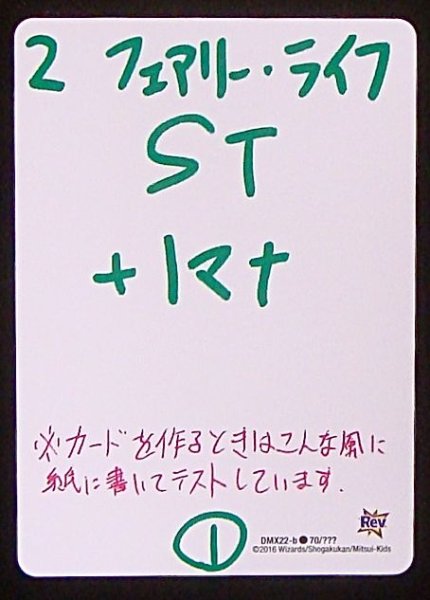 2 フェアリー・ライフ
ST
+1マナ
※カードを作るときはこんな風に
紙に書いてテストしています.
1
Rev
DMX22-b ● 70/???
©2016 Wizards/Shogakukan/Mitsui-Kids